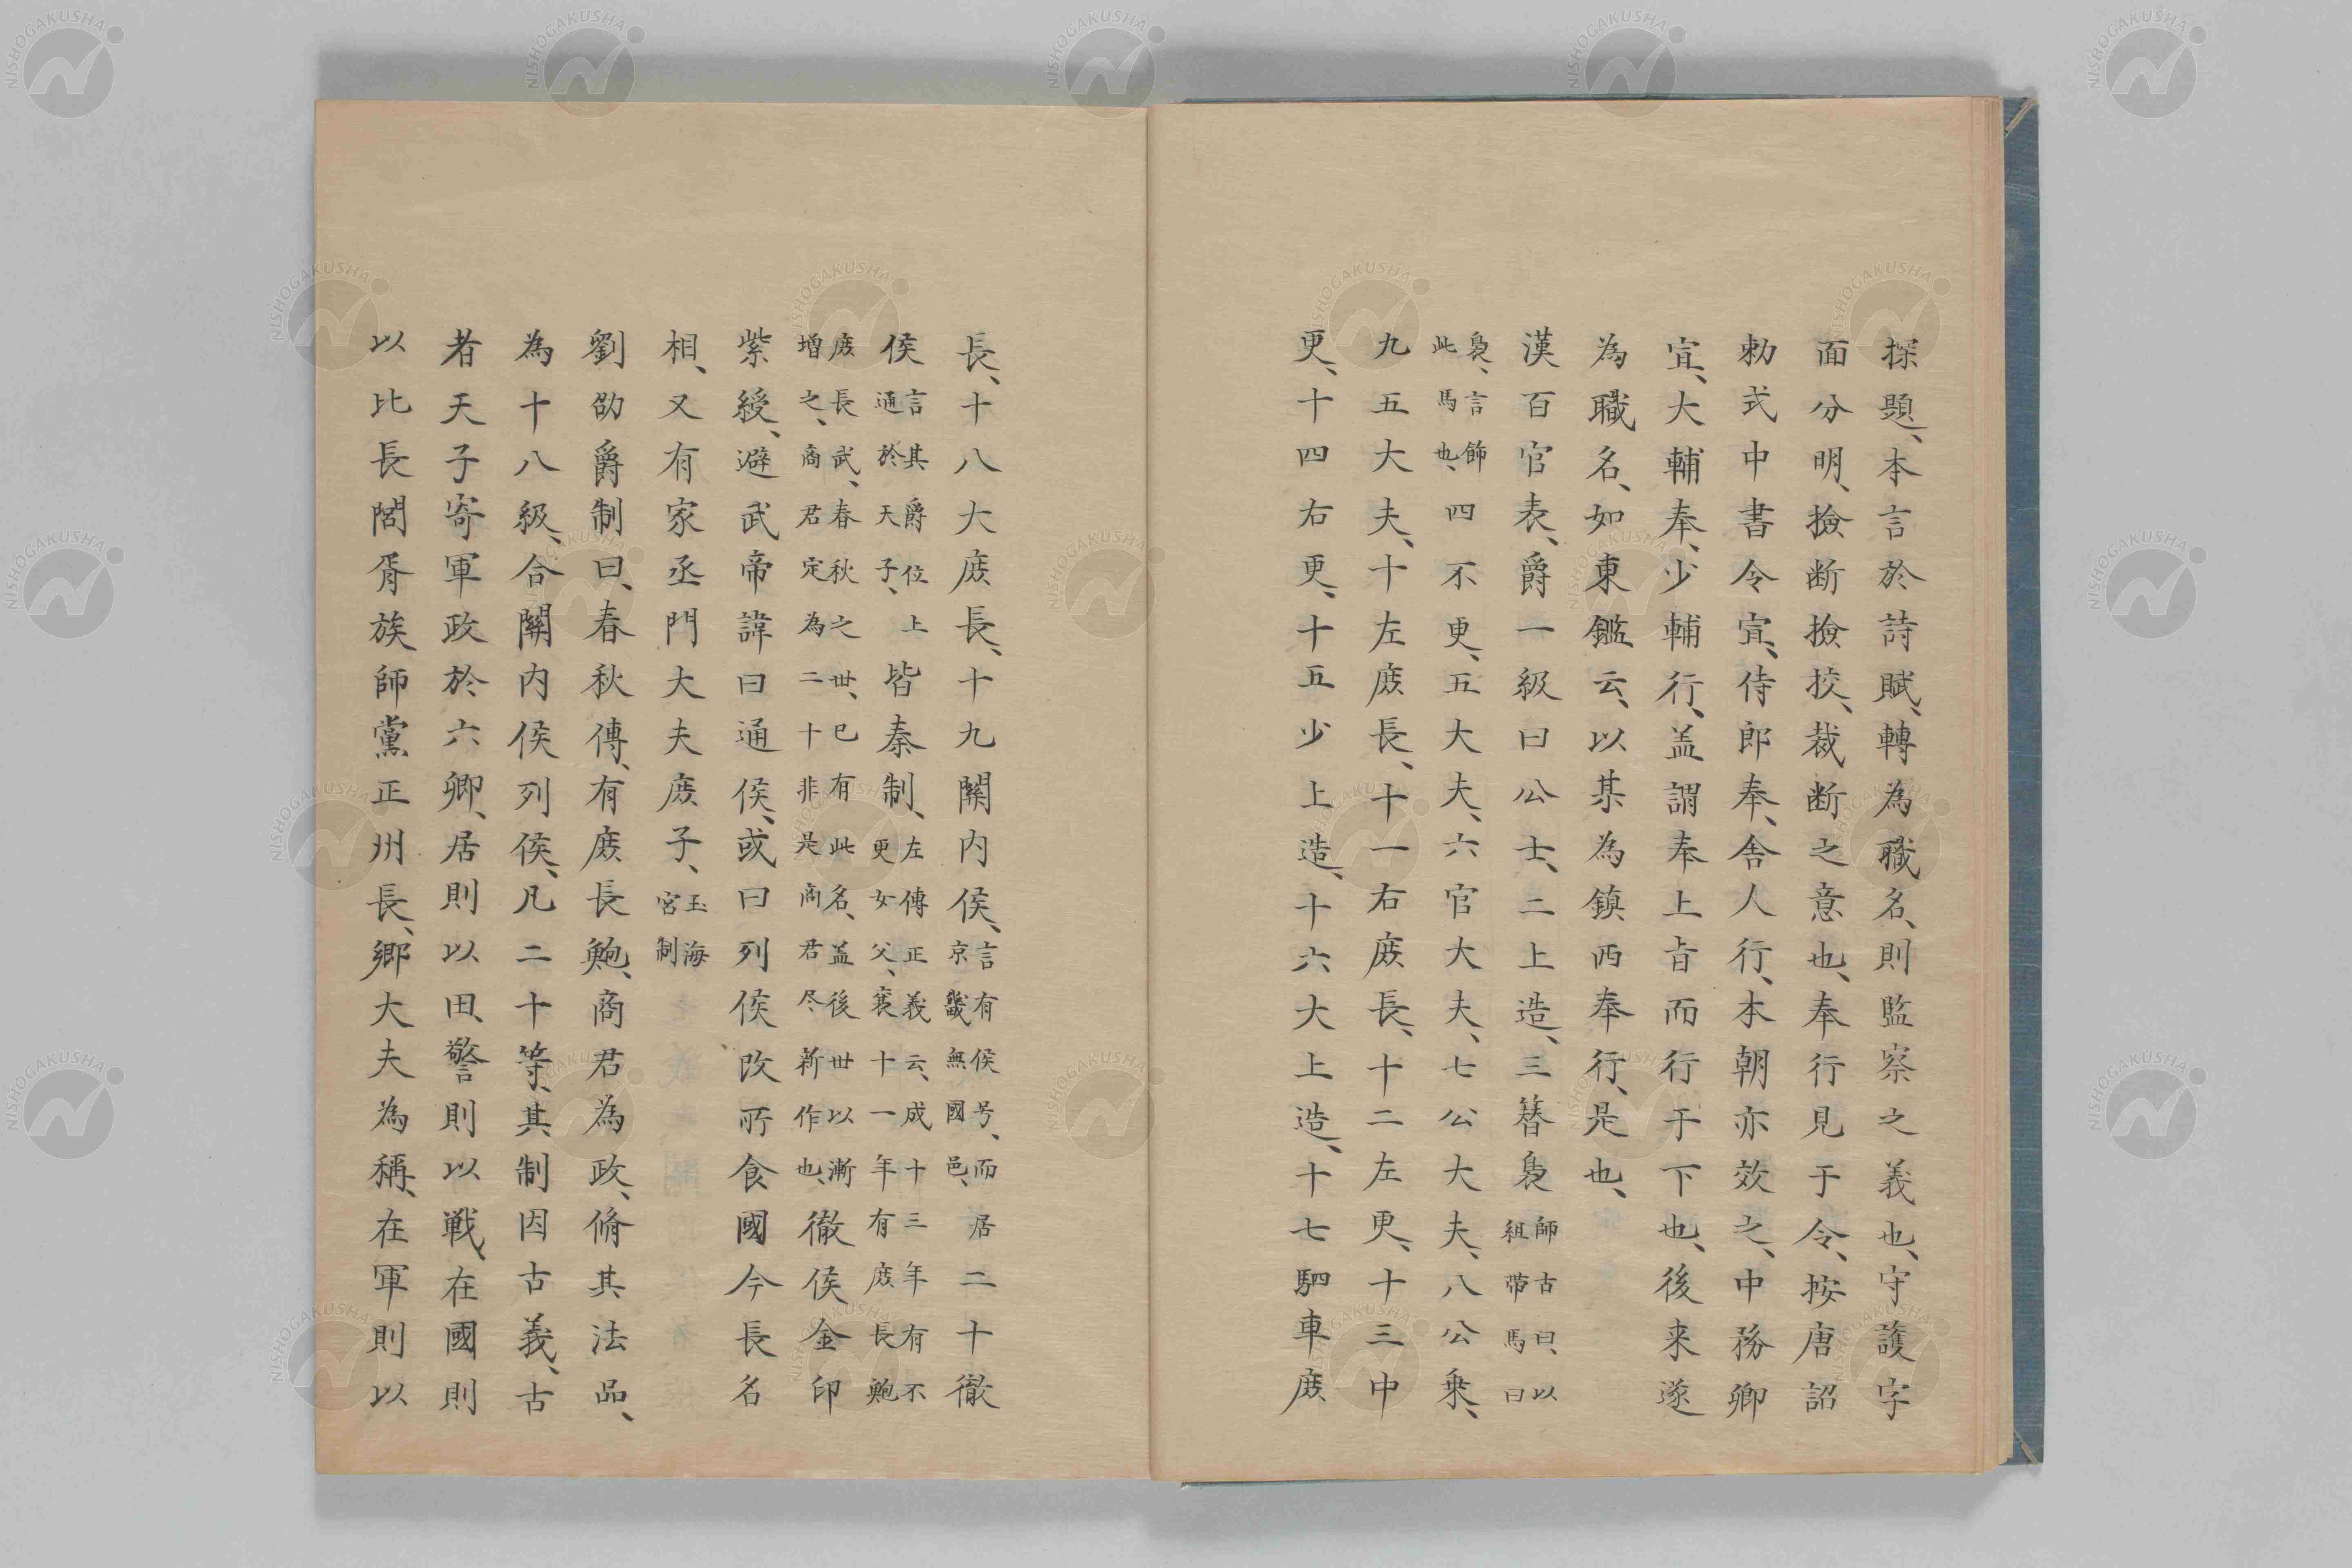 探題、本言於詩賦、轉為職名、則監察之義也、守護字
面分明、撿断撿挍、裁断之意也、奉行見于令、按唐詔
勅式中書令宣、侍郎奉、舎人行、本朝亦效之、中務卿
宣、大輔奉、少輔行、盖謂奉上旨而行于下也、後来遂
為職名、如東鑑云、以某為鎮西奉行、是也、
漢百官表、爵一級曰公士、二上造、三簪褭師古曰、以組帯馬曰
褭、言飾此馬也、四不更、五大夫、六官大夫、七公大夫、八公乗、
九五大夫、十左庶長、十一右庶長、十二左更、十三中
更、十四右更、十五少上造、十六大上造、十七駟車庶
長、十八大庶長、十九關内侯、言有侯号、而居京畿無國邑、二十徹
侯言其爵位上通於天子、皆秦制、左傳正義云、成十三年有不更女父、襄十一年有庶長鮑
庶長武、春秋之世、已有此名、盖後世以漸増之、商君定為二十非是商君尽新作也、徹侯金印
紫綬、避武帝諱曰通侯、或曰列侯改所食國今長名
相、又有家丞門大夫庶子、玉海宮制
劉劭爵制曰、春秋傳、有庶長鮑、商君為政、脩其法品、
為十八級、合關内侯列侯、凡二十等、其制因古義、古
者天子寄軍政於六卿、居則以田、警則以戦、在國則
以比長閭胥族師黨正州長、鄉大夫為稱、在軍則以
NISHOGAKUSHA